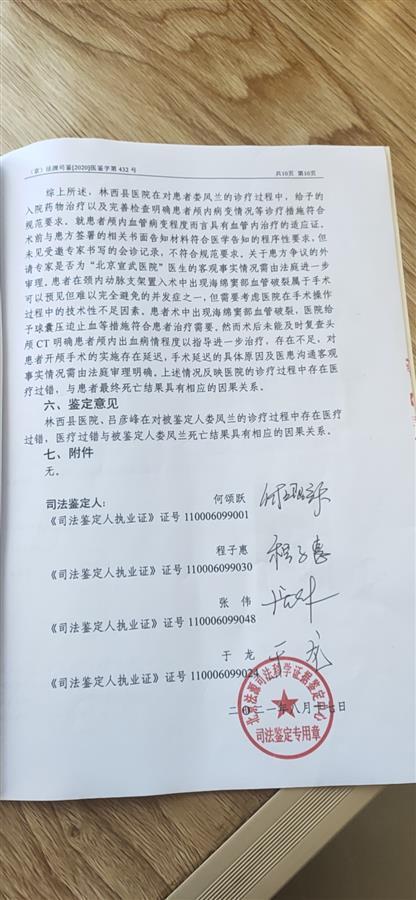 （京）法源司鉴[2020]医鉴字第 432 号 共10页 第10页
综上所述，林西县医院在对患者娄凤兰的诊疗过程中，给予的
入院药物治疗以及完善检查明确患者颅内病变情况等诊疗措施符合
规范要求。就患者颅内血管病变程度而言具有血管内治疗的适应证。
术前与患方签署的相关书面告知材料符合医学告知的程序性要求，但
未见受邀专家书写的会诊记录，不符合规范要求。关于患方争议的外
请专家是否为“北京宣武医院”医生的客观事实情况需由法庭进一步
审理。患者在颈内动脉支架置入术中出现海绵窦部血管破裂属于手术
可以预见但难以完全避免的并发症之一，但需要考虑医院在手术操作
过程中的技术性不足因素。患者术中出现海绵窦部血管破裂，医院给
予球囊压迫止血等措施符合患者治疗需要。然而术后未能及时复查头
颅 CT 明确患者颅内出血病情程度以指导进一步治疗，存在不足，对
患者开颅手术的实施存在延迟，手术延迟的具体原因及医患沟通客观
事实情况需由法庭审理明确。上述情况反映医院的诊疗过程中存在医
疗过错，与患者最终死亡结果具有相应的因果关系。
六、鉴定意见
林西县医院、吕彦峰在对被鉴定人娄凤兰的诊疗过程中存在医疗
过错，医疗过错与被鉴定人娄凤兰死亡结果具有相应的因果关系。
七、附件
无。
司法鉴定人： 何颂跃
《司法鉴定人执业证》证号 110006099001
程子惠 程子惠
《司法鉴定人执业证》证号 110006099030
张 伟
《司法鉴定人执业证》证号 110006099048
于 龙 于龙
《司法鉴定人执业证》证号 110006099024
北京法源司法科学证据鉴定中心
二〇二一年八月十七日
司法鉴定专用章